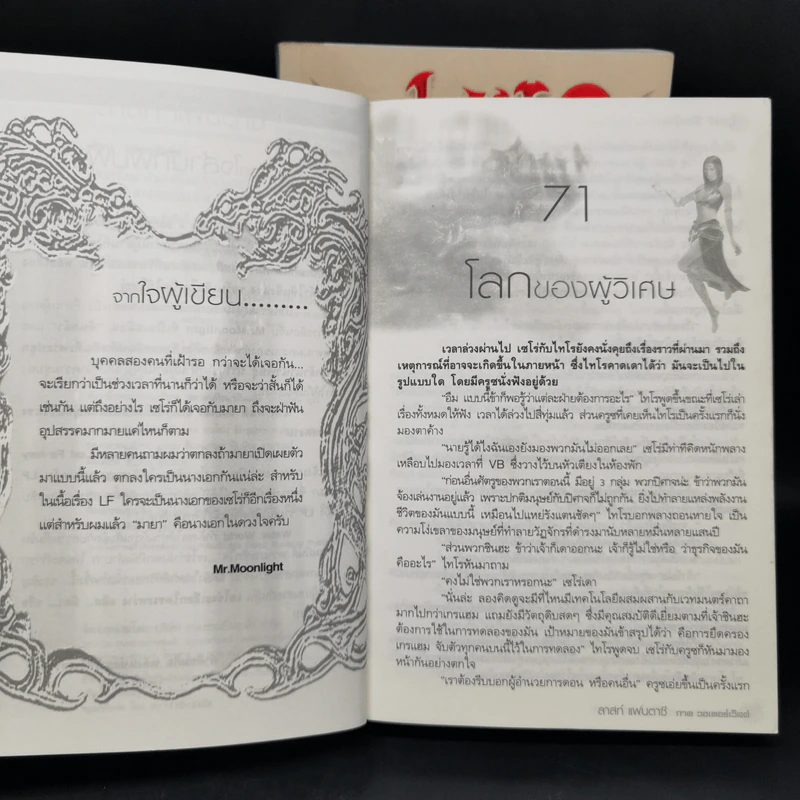 จากใจผู้เขียน.........
บุคคลสองคนที่เฝ้ารอ กว่าจะได้เจอกัน...
จะเรียกว่าเป็นช่วงเวลาที่นานก็ว่าได้ หรือจะว่าสั้นก็ได้
เช่นกัน แต่ถึงอย่างไร เซโร่ก็ได้เจอกับมายา ถึงจะฝ่าฟัน
อุปสรรคมากมายแค่ไหนก็ตาม
มีหลายคนถามผมว่าตกลงถ้ามายาเปิดเผยตัว
มาแบบนี้แล้ว ตกลงใครเป็นนางเอกกันแน่ล่ะ สำหรับ
ในเนื้อเรื่อง LF ใครจะเป็นนางเอกของเซโร่ก็อีกเรื่องหนึ่ง
แต่สำหรับผมแล้ว “มายา” คือนางเอกในดวงใจครับ
Mr.Moonlight
71
โลกของผู้วิเศษ
เวลาล่วงผ่านไป เซโร่กับไทโรยังคงนั่งคุยถึงเรื่องราวที่ผ่านมา รวมถึง
เหตุการณ์ที่อาจจะเกิดขึ้นในภายหน้า ซึ่งไทโรคาดเดาได้ว่า มันจะเป็นไปใน
รูปแบบใด โดยมีครูซนั่งฟังอยู่ด้วย
“อืม แบบนี้ข้าก็พอรู้ว่าแต่ละฝ่ายต้องการอะไร” ไทโรพูดขึ้นขณะที่เซโร่เล่า
เรื่องทั้งหมดให้ฟัง เวลาได้ล่วงไปสี่ทุ่มแล้ว ส่วนครูซที่เคยเห็นไทโรเป็นครั้งแรกก็นั่ง
มองตาค้าง
“นายรู้ได้ไงฉันเองยังมองพวกมันไม่ออกเลย” เซโร่มีท่าที่คิดหนักพลาง
เหลือบไปมองเวลาที่ VB ซึ่งวางไว้บนหัวเตียงในห้องพัก
“ก่อนอื่นศัตรูของพวกเราตอนนี้ มีอยู่ 3 กลุ่ม พวกปีศาจน่ะ ข้าว่าพวกมัน
จ้องเล่นงานอยู่แล้ว เพราะปกติมนุษย์กับปีศาจก็ไม่ถูกกัน ยิ่งไปทำลายแหล่งพลังงาน
ชีวิตของมันแบบนี้ เหมือนไปแหย่รังแตนชัดๆ” ไทโรบอกพลางถอนหายใจ เป็น
ความโง่เขลาของมนุษย์ที่ทำลายวัฏจักรที่ดำรงมานับหลายหมื่นหลายแสนปี
“ส่วนพวกชินฮะ ข้าว่าเจ้าก็เดาออกนะ เจ้าก็รู้ไม่ใช่หรือ ว่าธุรกิจของมัน
คืออะไร” ไทโรหันมาถาม
“คงไม่ใช่พวกเราหรอกนะ” เซโร่เดา
“นั่นล่ะ ลองคิดดูจะมีที่ไหนมีเทคโนโลยีผสมผสานกับเวทมนตร์คาถา
มากไปกว่าเกรแฮม แถมยังมีวัตถุดิบสดๆ ซึ่งมีคุณสมบัติดีเยี่ยมตามที่เจ้าชินฮะ
ต้องการใช้ในการทดลองของมัน เป้าหมายของมันข้าสรุปได้ว่า คือการยึดครอง
เกรแฮม จับตัวทุกคนบนนี้ไว้ในการทดลอง” ไทโรพูดจบ เซโร่กับครูซก็หันมามอง
หน้ากันอย่างตกใจ
“เราต้องรีบบอกผู้อำนวยการดอน หรือคนอื่น” ครูซเอ่ยขึ้นเป็นครั้งแรก
ลาสท์ แฟนตาซี